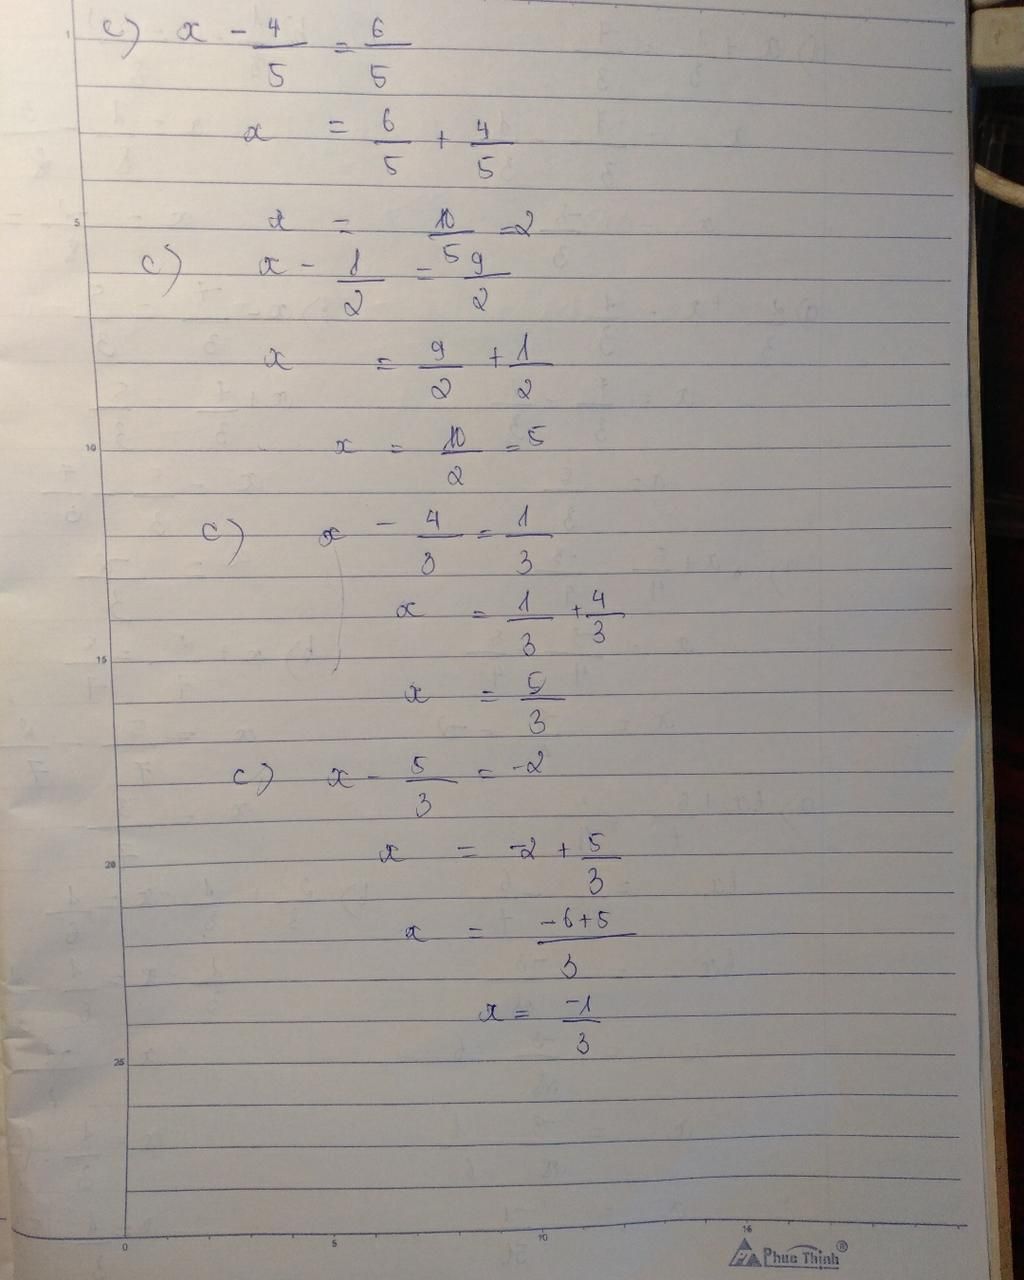 c) x - 4/5 = 6/5
x = 6/5 + 4/5
x = 10/5 = 2
c) x - 1/2 = 9/2
x = 9/2 + 1/2
x = 10/2 = 5
c) x - 4/3 = 1/3
x = 1/3 + 4/3
x = 5/3
c) x - 5/3 = -2
x = -2 + 5/3
x = (-6+5)/3
x = -1/3
1
5
10
15
20
25
0 5 10 15
Phuc Thinh®